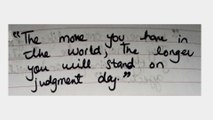 "The more you have in
the world, the longer
you will stand on
judgment day."